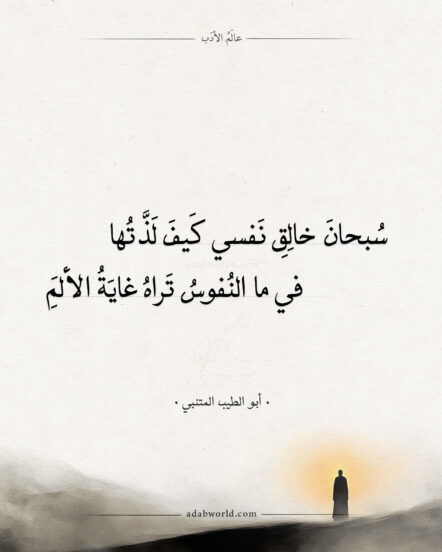 عالَمُ الأدَب
سُبحانَ خالِقِ نَفسي كَيفَ لَذَّتُها
في ما النُفوسُ تَراهُ غايَةُ الألَمِ
• أبو الطيب المتنبي •
adabworld.com